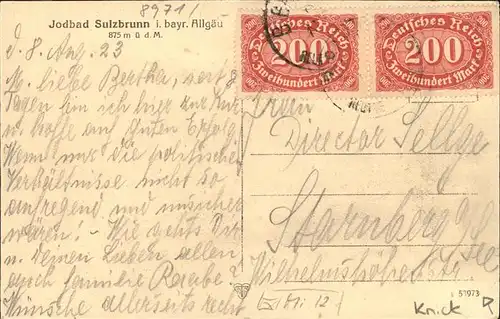 8971/
Jodbad Sulzbrunn i. bayr. Allgäu
875 m ü. d. M.
d. 8. Aug. 23
M. liebe Bertha, seit 8
Tagen bin ich hier zur Kur
u. hoffe auf guten Erfolg.
Wenn nur die politischen
Verhältnisse nicht so
aufregend und unsicher
wären! – Wie gehts Dir
u. Deinen Lieben allen,
auch Familie Raabe?
Wünsche allerseits recht
Deutsches Reich
200
Zweihundert Mark
Deutsches Reich
200
Zweihundert Mark
Frau
Direktor
Starnberg
Wilhelmshöhestr
53973
Knick